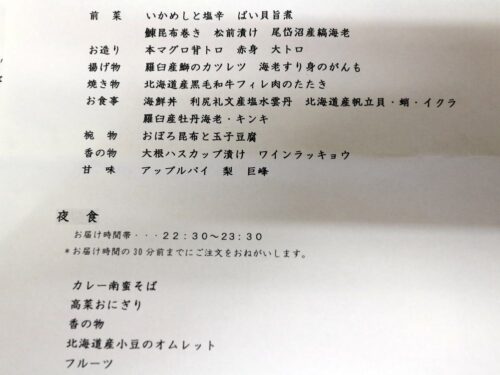 前 菜 いかめしと塩辛 ばい貝旨煮
鰊昆布巻き 松前漬け 尾岱沼産縞海老
お造り 本マグロ背トロ 赤身 大トロ
揚げ物 羅臼産鰤のカツレツ 海老すり身のがんも
焼き物 北海道産黒毛和牛フィレ肉のたたき
お食事 海鮮丼 利尻礼文産塩水雲丹 北海道産帆立貝・蛸・イクラ
羅臼産牡丹海老・キンキ
椀 物 おぼろ昆布と玉子豆腐
香の物 大根ハスカップ漬け ワインラッキョウ
甘 味 アップルパイ 梨 巨峰
夜 食
お届け時間帯・・・22:30~23:30
*お届け時間の30分前までにご注文をおねがいします。
カレー南蛮そば
高菜おにぎり
香の物
北海道産小豆のオムレット
フルーツ